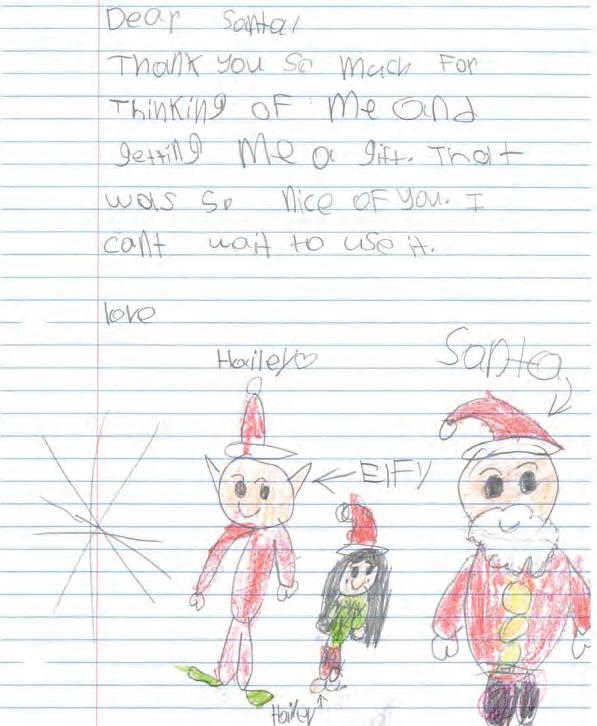 Dear Santa,
Thank you so much For
Thinking of me and
getting me a gift. That
was so nice of you. I
cant wait to use it.
love
Hailey♡
Santa
Elfy
Hailey